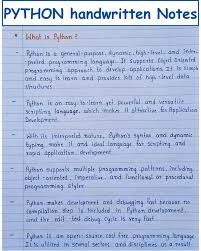 PYTHON handwritten Notes
* What is Python?
- Python is a general-purpose, dynamic, high-level and inter-
preted programming language. It supports Object Oriented
programming approach to develop applications. It is simple
and easy to learn and provides lots of high-level data
structures.
- Python is an easy to learn yet powerful and versatile
scripting language, which makes it attractive for Application
Development.
- With its interpreted nature, Python's syntax and dynamic
typing make it an ideal language for scripting and
rapid application development.
- Python supports multiple programming patterns, including
object-oriented, imperative, and functional or procedural
programming styles.
- Python makes development and debugging fast because no
compilation step is included in Python development,
and the edit-test-debug cycle is very fast.
- Python is an open-source cost free programming language.
It is utilized in several sectors and disciplines as a result